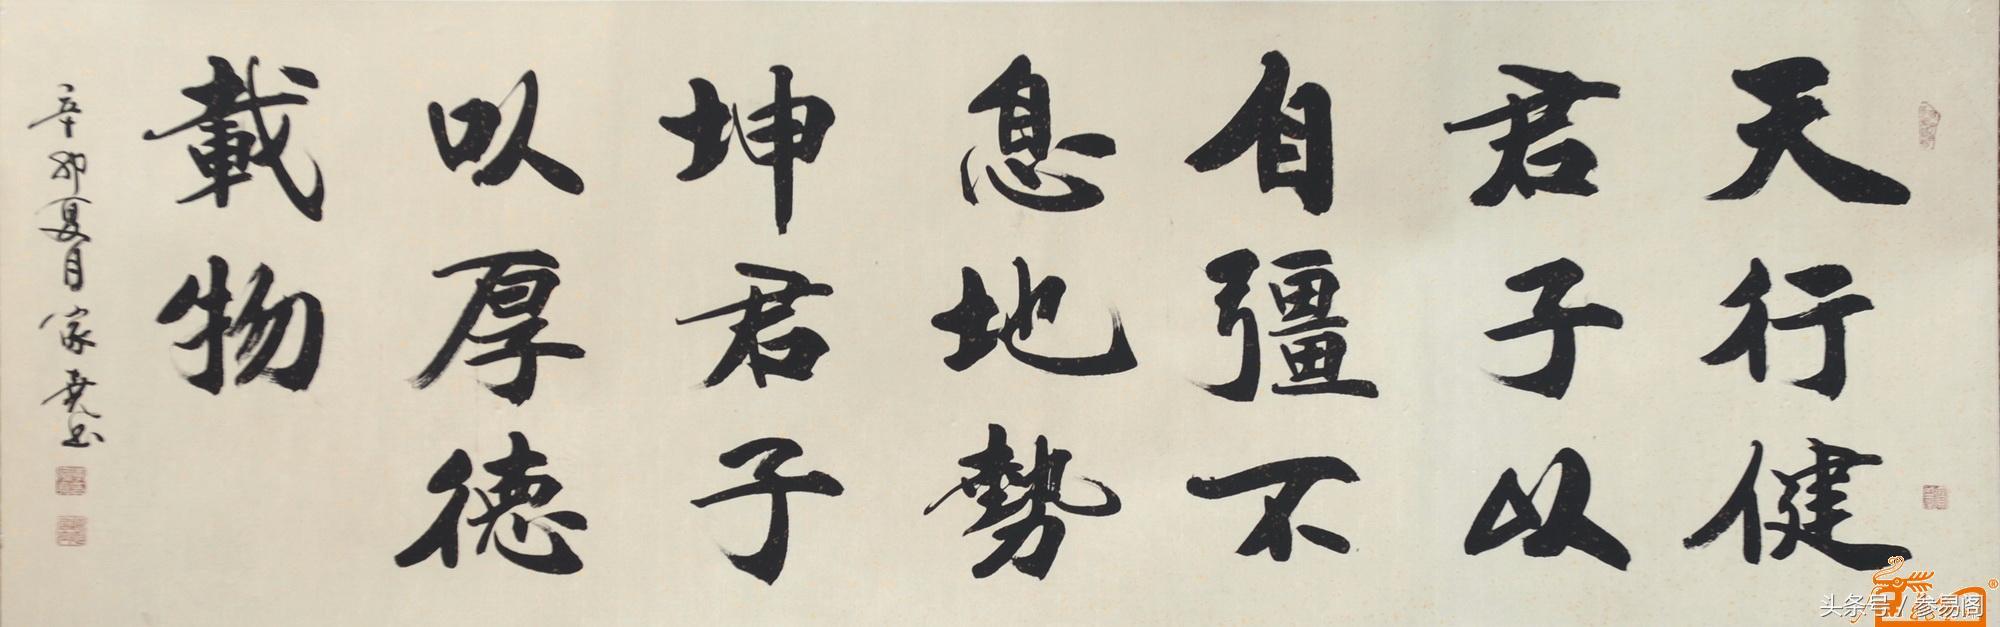 天行健
君子以
自彊不
息地勢
坤君子
以厚德
載物
辛卯夏月家尭书
头条号 / 参易阁